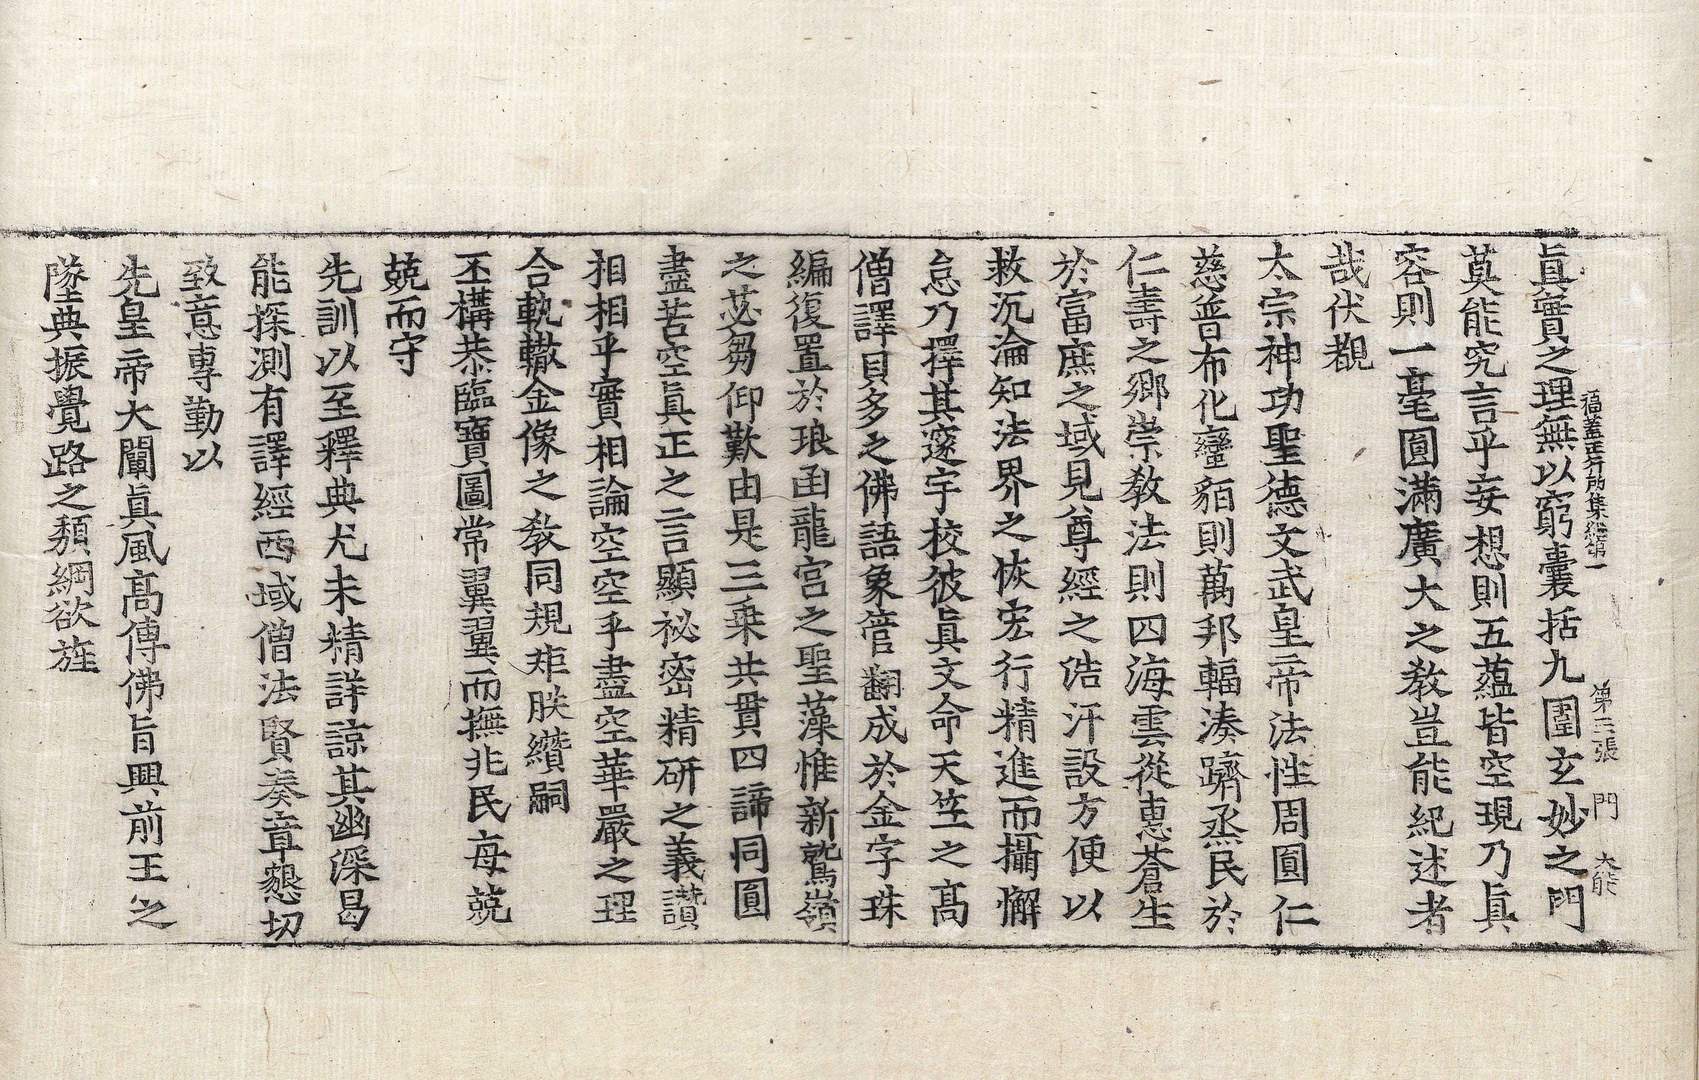 福蓋正行所集經第一 第三張 門 大能
眞實之理無以窮囊括九圍玄妙之門
莫能究言乎妄想則五蘊皆空現乃眞
容則一毫圓滿廣大之教豈能紀述者
哉伏覩
太宗神功聖德文武皇帝法性周圓仁
慈普布化蠻貊則萬邦輻湊躋烝民於
仁壽之鄉崇教法則四海雲從惠蒼生
於富庶之域見尊經之浩汗設方便以
救沉淪知法界之恢宏行精進而攝懈
怠乃擇其邃宇校彼眞文命天竺之高
僧譯貝多之佛語象管翻成於金字珠
編復置於琅函龍宮之聖藻惟新鷲嶺
之苾芻仰歎由是三乗共貫四諦同圓
盡苦空眞正之言顯祕密精研之義讃
相相乎實相論空空乎盡空華嚴之理
合軌轍金像之教同規矩朕纘嗣
丕構恭臨寶圖常翼翼而撫兆民每兢
兢而守
先訓以至釋典尤未精詳諒其幽深曷
能探測有譯經西域僧法賢奏章懇切
致意專勤以
先皇帝大闡眞風高傳佛旨興前王之
墜典振覺路之頽綱欲旌